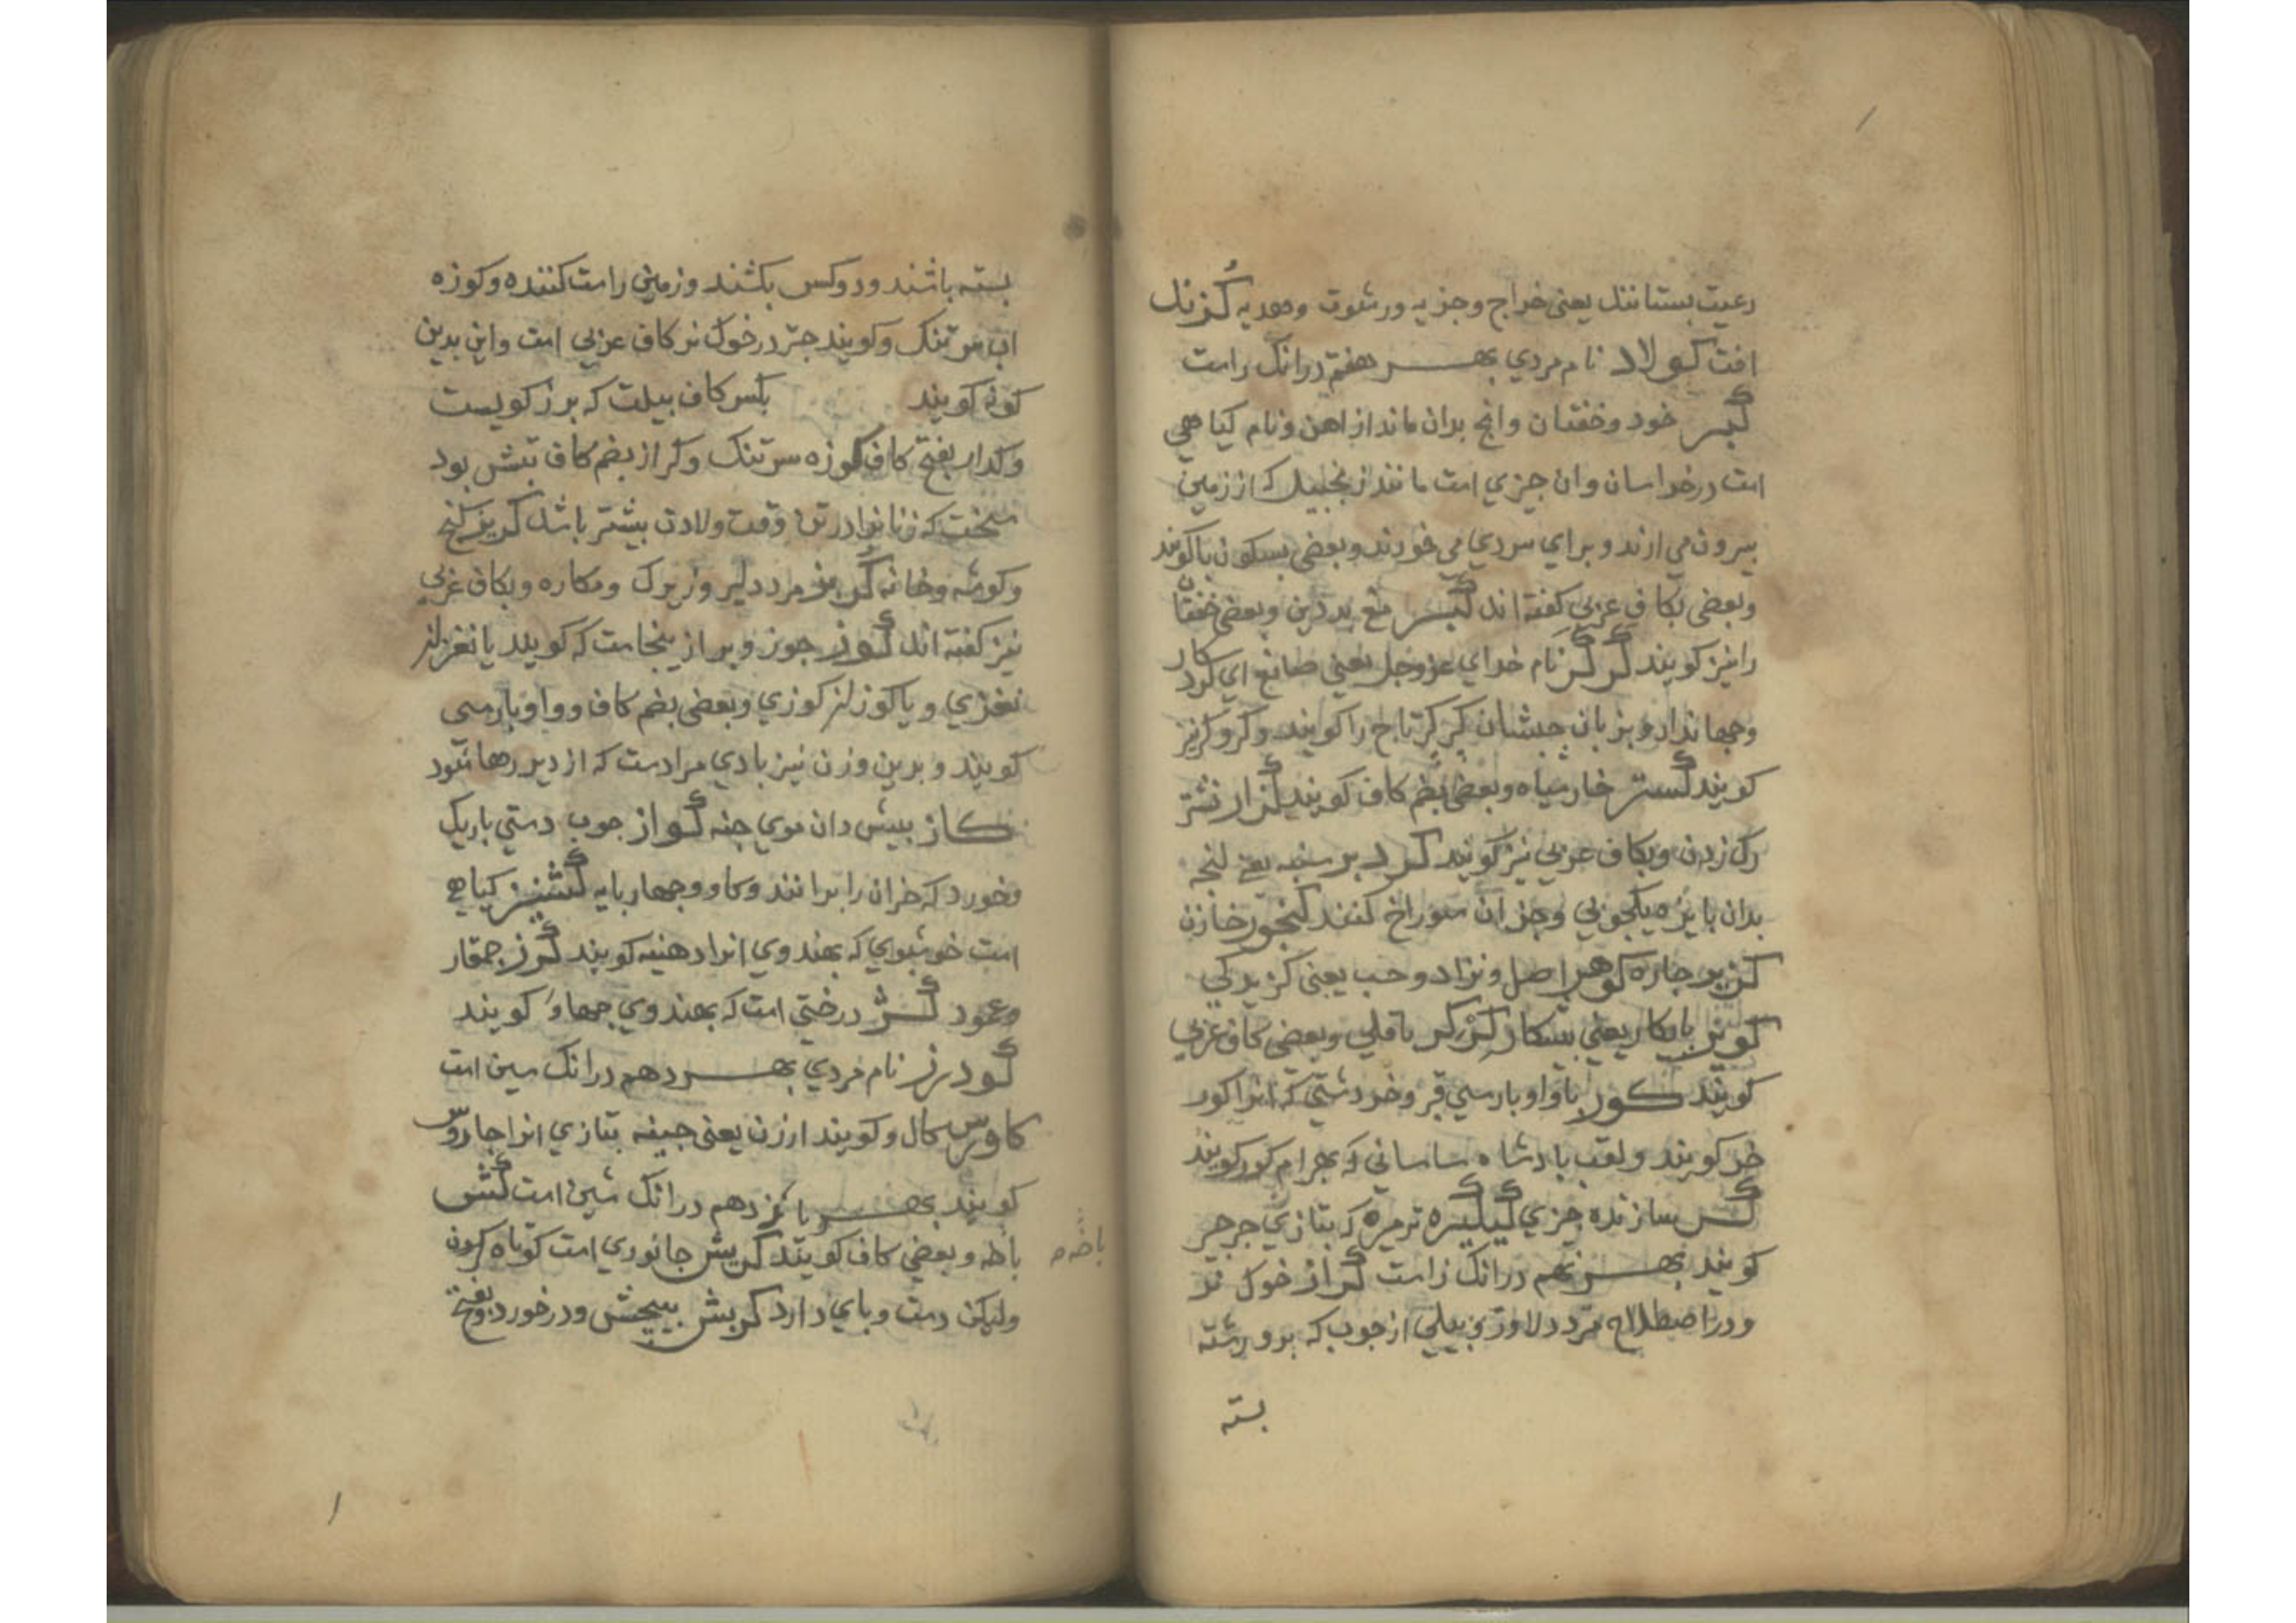 رعیت بستانند یعنی خراج و جزیه و رشوت و هدیه گزند
افت گولاد نام مردي بهر هفتم در انک را ست
گبر خود و خفتان و انچ بدان ماند از اهن و نام کیا هی
است در خراسان و ان چیزي است مانند زنجبیل که از زمین
بیرون می ارند و براي سردي می خورند و بعضی بسکون با کویند
و بعضی بکاف عربی کفته اند گبر مغ بد دین و بعضی خفتان
را نیز کویند گرگر نام خداي عز و جل یعنی صانع اي کرد کار
و جهاندار و بزبان حبشان کرکر تاج را کویند و کرو کر نیز
کویند گستر خار سیاه و بعضی بضم کاف کویند گزار نشتر
رک زدن و بکاف عربی نیز کویند گرد بر
بدان بایزه بکچوبی و جز ان سوراخ کنند گنجور خازن
گزیر چاره گوهر اصل و نژاد و حسب یعنی کزیدکی
یعنی بیسکار گرگر باقلی و بعضی کاف عربی
کویند گور با واو پارسی قبر و خر دشتی که انرا کور
خر کویند و لقب پادشاه ساسانی که بهرام کور کویند
گر سازنده چیزي گیلیره ترمیره که بتازي جرجیر
کویند بهر نهم در انک زا ست گراز خوک نر
و در اصطلاح مرد دلاور و بیلی از چوب که برو رشته
بسته
بسته باشند و دو کس بکشند و زمین راست کننده و کوزه
اب سر تنک و کویند جز در خوک نر کاف عربی است و این بدین
کونه کویند بکسر کاف بیلست که برزکویست
و کدار بفتح کاف کوزه سر تنک و کراز بضم کاف تبش بود
سخت که زنانرا در تن وقت ولادت بیشتر باشد گریز کنج
و کوشه و خانه گربز مرد دلیر و زیرک و مکاره و بکاف عربی
نیز کفته اند گوز جوز و بر از ینجاست که کویند یا نغز لنز
نغزي و یا کوز لنز کوزي و بعضی بضم کاف و واو پارسی
کویند و برین وزن نیز بادي مرادست که از دبر رها شود
گاز پیش دان موي چنه گواز چوب دستی باریک
و خورد که خران را برانند و کاو و چهار پایه گشنیز کیاهی
است خوشبوي که بهندوي انرا دهنیه کویند گرز چمقار
و عمود گز درختی است که بهندوي جهاو کویند
گودرز نام مردي بهر دهم در انک سین است
گاورس کال و کویند ارزن یعنی چینه بتازي انرا جاورس
کویند بهر یانزدهم در انک شین است گش
باطه و بعضی کاف کویند گریش جانوري است کوتاه کردن
ولیکن دست و پاي دارد گربش بپیچش و در خورد و بفتح
باطه م